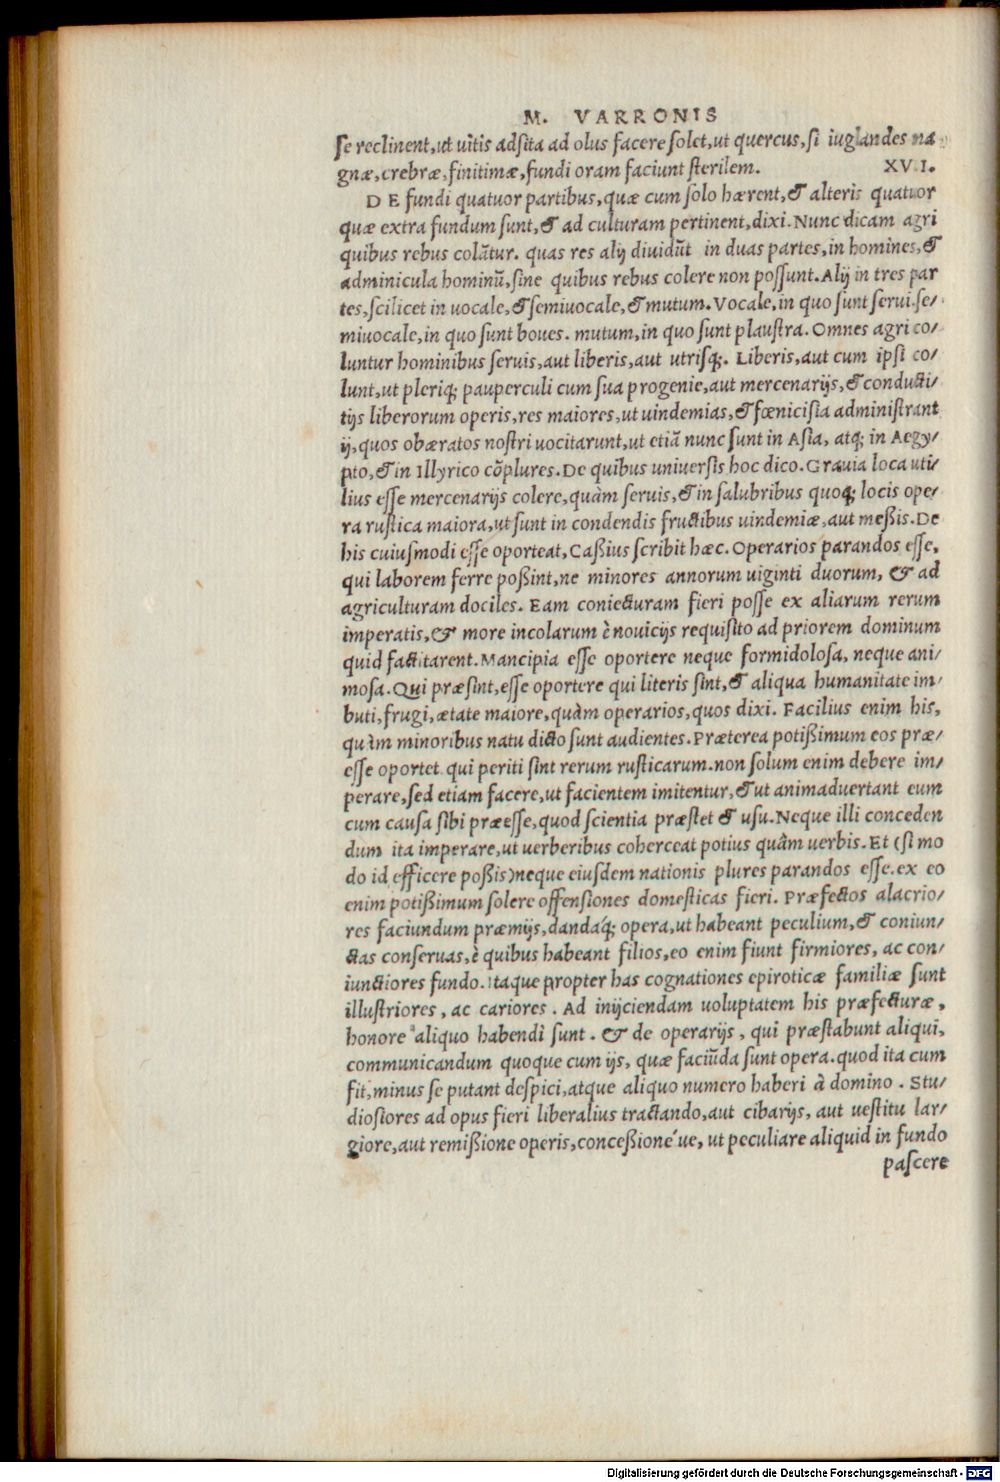 M. VARRONIS
se reclinent, ut uitis adsita ad olus facere solet, ut quercus, si iuglandes ma
gnæ, crebræ, finitimæ, fundi oram faciunt sterilem. XVI.
DE fundi quatuor partibus, quæ cum solo hærent, & alteris quatuor
quæ extra fundum sunt, & ad culturam pertinent, dixi. Nunc dicam agri
quibus rebus colãtur. quas res alij diuidũt in duas partes, in homines, &
adminicula hominũ, sine quibus rebus colere non possunt. Alij in tres par
tes, scilicet in uocale, & semiuocale, & mutum. Vocale, in quo sunt serui. se/
miuocale, in quo sunt boues. mutum, in quo sunt plaustra. Omnes agri co/
luntur hominibus seruis, aut liberis, aut utrisq;. Liberis, aut cum ipsi co/
lunt, ut pleriq; pauperculi cum sua progenie, aut mercenarijs, & conducti/
tijs liberorum operis, res maiores, ut uindemias, & fœnicisia administrant
ij, quos obæratos nostri uocitarunt, ut etiã nunc sunt in Asia, atq; in Aegy/
pto, & in Illyrico cõplures. De quibus uniuersis hoc dico. Grauia loca uti/
lius esse mercenarijs colere, quàm seruis, & in salubribus quoq; locis ope/
ra rustica maiora, ut sunt in condendis fructibus uindemiæ, aut meßis. De
his cuiusmodi esse oporteat, Caßius scribit hæc. Operarios parandos esse,
qui laborem ferre poßint, ne minores annorum uiginti duorum, & ad
agriculturam dociles. Eam coniecturam fieri posse ex aliarum rerum
imperatis, & more incolarum è nouicijs requisito ad priorem dominum
quid factitarent. Mancipia esse oportere neque formidolosa, neque ani/
mosa. Qui præsint, esse oportere qui literis sint, & aliqua humanitate im/
buti, frugi, ætate maiore, quàm operarios, quos dixi. Facilius enim his,
quàm minoribus natu dicto sunt audientes. Præterea potißimum eos præ/
esse oportet qui periti sint rerum rusticarum. non solum enim debere im/
perare, sed etiam facere, ut facientem imitentur, & ut animaduertant eum
cum causa sibi præesse, quod scientia præstet & usu. Neque illi conceden
dum ita imperare, ut uerberibus coherceat potius quàm uerbis. Et (si mo
do id efficere poßis) neque eiusdem nationis plures parandos esse. ex eo
enim potißimum solere offensiones domesticas fieri. Præfectos alacrio/
res faciundum præmijs, dandáq; opera, ut habeant peculium, & coniun/
ctas conseruas, è quibus habeant filios, eo enim fiunt firmiores, ac con/
iunctiores fundo. Itaque propter has cognationes epiroticæ familiæ sunt
illustriores, ac cariores. Ad inijciendam uoluptatem his præfecturæ,
honore aliquo habendi sunt. & de operarijs, qui præstabunt aliqui,
communicandum quoque cum ijs, quæ faciũda sunt opera. quod ita cum
fit, minus se putant despici, atque aliquo numero haberi à domino. Stu/
diosiores ad opus fieri liberalius tractando, aut cibarijs, aut uestitu lar/
giore, aut remißione operis, conceßione´ue, ut peculiare aliquid in fundo
pascere
Digitalisierung gefördert durch die Deutsche Forschungsgemeinschaft - DFG